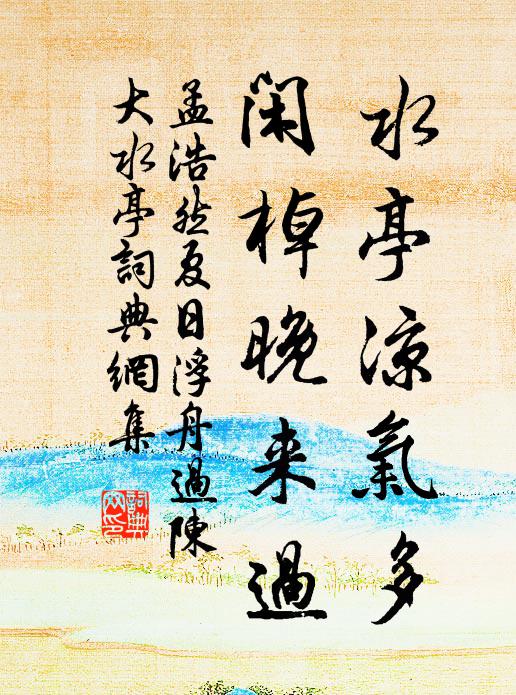 水亭涼氣多
閑棹晚来過
孟浩然夏日浮舟過陳
大水亭詞典網集
詞典網印